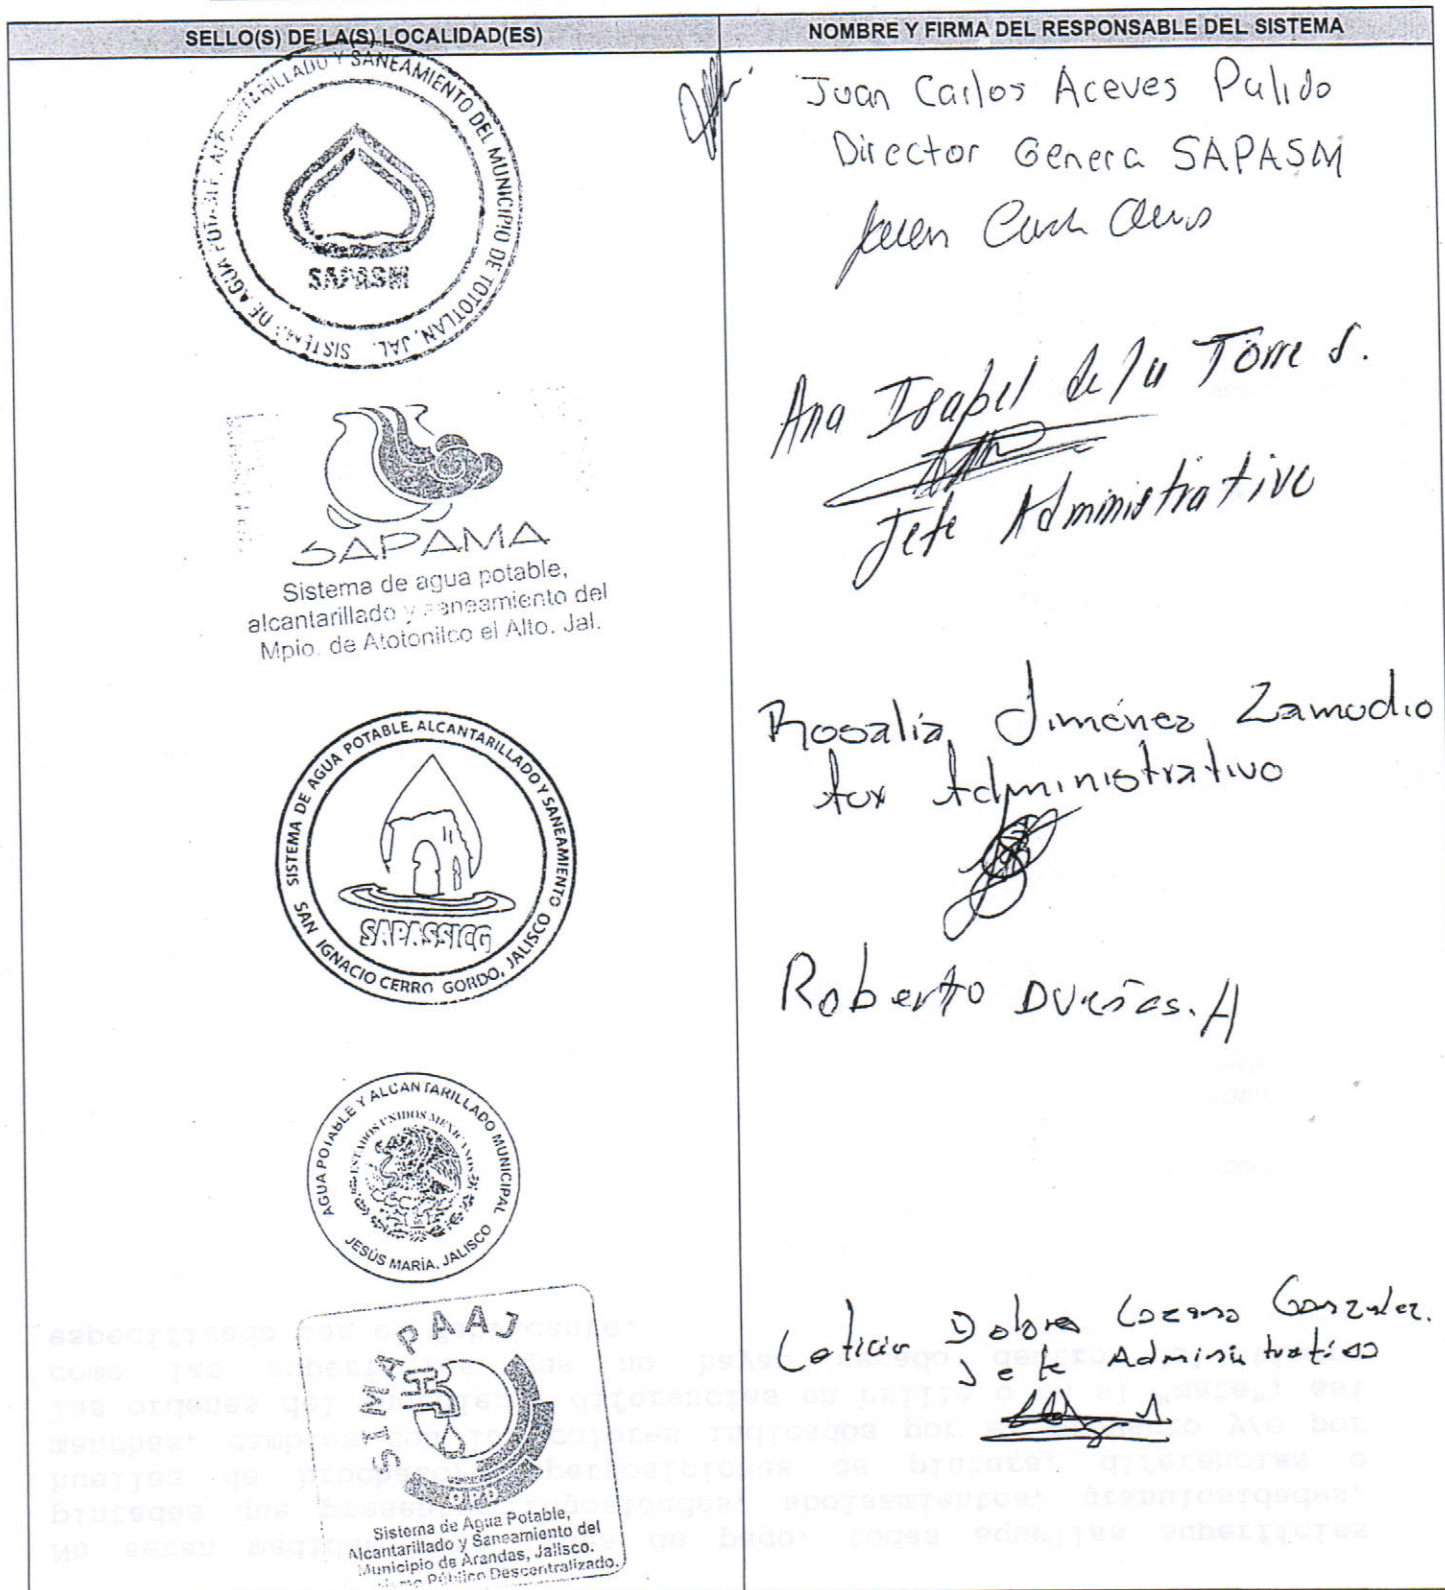 SELLO(S) DE LA(S) LOCALIDAD(ES)
NOMBRE Y FIRMA DEL RESPONSABLE DEL SISTEMA
SISTEMA DE AGUA POTABLE, ALCANTARILLADO Y SANEAMIENTO DEL MUNICIPIO DE TOTOTLAN, JAL.
SAPASM
Juan Carlos Aceves Pulido
Director Genera SAPASM
SAPAMA
Sistema de agua potable,
alcantarillado y saneamiento del
Mpio. de Atotonilco el Alto. Jal.
Ana Isabel de la Torre S.
Jefe Administrativo
SISTEMA DE AGUA POTABLE, ALCANTARILLADO Y SANEAMIENTO
SAN IGNACIO CERRO GORDO, JALISCO
SAPASSICG
Rosalia Jiménez Zamudio
Aux Administrativo
AGUA POTABLE Y ALCANTARILLADO MUNICIPAL
ESTADOS UNIDOS MEXICANOS
JESÚS MARÍA, JALISCO
Roberto Dueñas. A
SIMAPAAJ
Sistema de Agua Potable,
Alcantarillado y Saneamiento del
Municipio de Arandas, Jalisco.
Público Descentralizado.
Leticia Dolores Lozano Gonzalez.
Jefe Administrativo